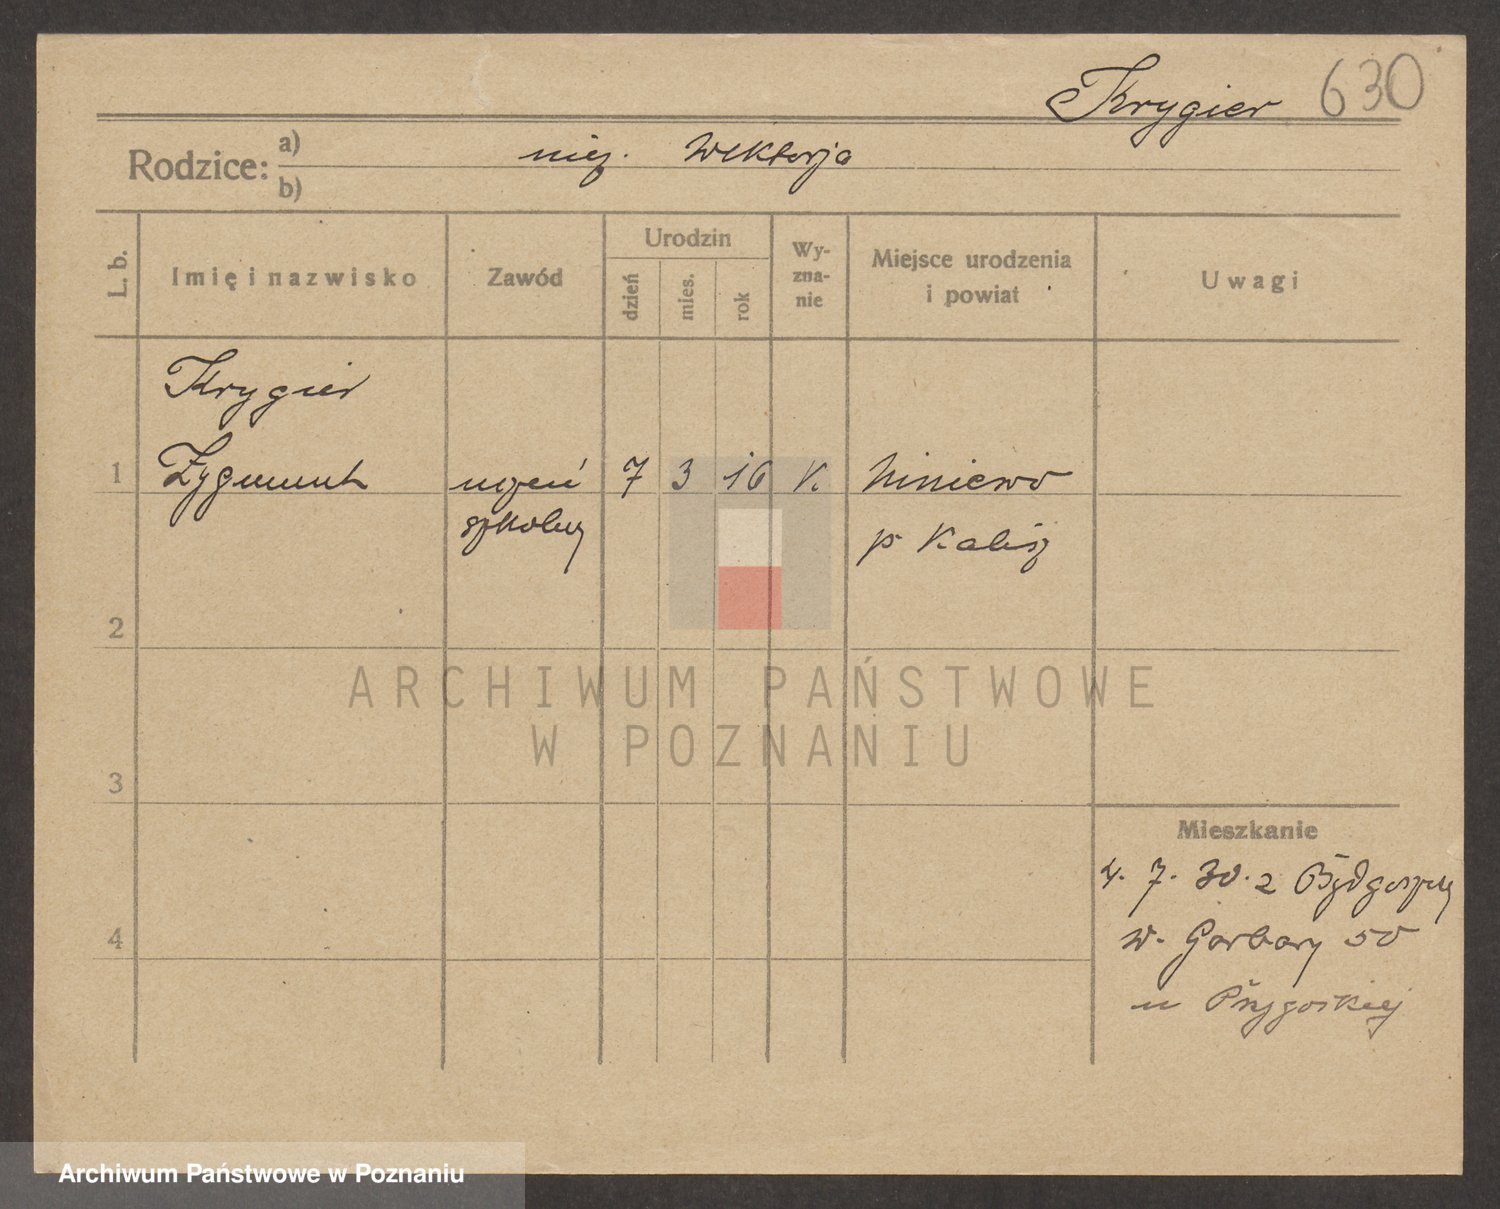 Krygier 630
Rodzice: a) niez. Wiktorja
b)
L. b. Imię i nazwisko Zawód Urodzin dzień mies. rok Wy-zna-nie Miejsce urodzenia i powiat Uwagi
Krygier
1 Zygmunt uczeń 7 3 16 K. Niniewo
szkolny p Kalisz
2
ARCHIWUM PAŃSTWOWE
W POZNANIU
3
Mieszkanie
4. 7. 30. z Bydgoszczy
4 w. Garbary 50
u Przygockiej
Archiwum Państwowe w Poznaniu